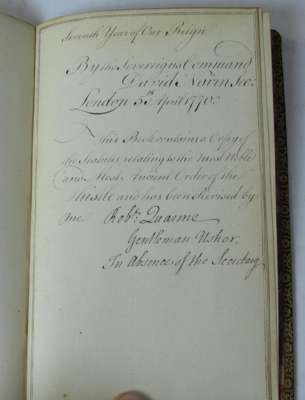 Seventh Year of Our Reign
By the Sovereigns Command
David Nairn Secy
London 5th April 1770.
This Book contains a Copy
of the Statutes relating to the most Noble
and Most Ancient Order of the
Thistle and has been Revised by
me Robt: Quarme
Gentleman Usher,
In Absence of the Secretary